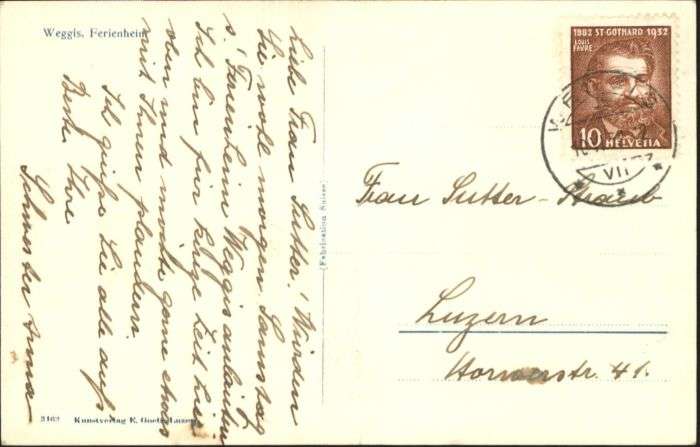 Weggis, Ferienheim
Liebe Frau Sutter! Würden
Sie wohl morgen Samstag
s' Ferienheim Weggis anläuten
Ich bin für kurze Zeit hier
oben und möchte gerne etwas
mit Ihnen plaudern.
Ich grüsse Sie alle aufs
Beste Ihre
Schwester Anna
3162 Kunstverlag E. Goetz, Luzern
(Fabrication Suisse)
1882 ST-GOTHARD 1932
LOUIS
FAVRE
10 HELVETIA
VII
Frau Sutter-
Luzern
41.